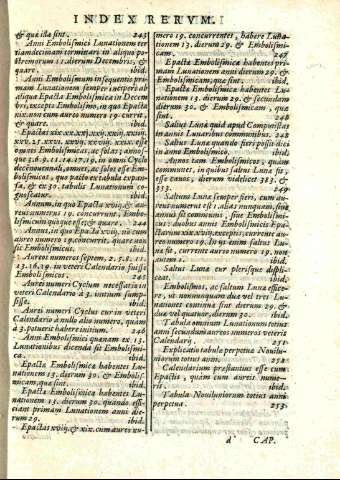 INDEX RERVM.
& qua illa sint. 245
Anni Embolismici Lunationem ter
tiamdecimam terminari in aliquo po
stremorum 11. dierum Decembris, &
quare. ibid.
Anni Embolismum insequentis pri
mam Lunationem semper incipere ab
aliqua Epacta Embolismica in Decem
bri, excepto Embolismo, quo Epacta
xix. non cum aureo numero 19. currit,
& quare. ibid.
aurei Embolismici, ac fictis: annos-
que 3. 6. 9. 11. 14. 17. 19. in omni Cyclo
decennovennali, omnes, ac solos esse Em-
bolismicos, quo pacto ex tabula expan-
sa, & ex 30. tabulis Lunationum co-
gnoscatur. ibid.
Annum, in quo Epacta xviij. & au-
reus numerus 19. concurrunt, Embo-
lismicum
Annum, in quo Epacta
aureo numero 19. concurrit, quare non
sit Embolismicus. ibid.
Aureos numeros septem, 2. 5. 8. 11.
13. 16. 19. in veteri Calendario fuisse
Embolismicos.
Aurei numeri Cyclum necessario in
veteri Calendario à 3. initium sump-
sisse. ibid.
Aurei numeri Cyclus cur in veteri
Calendario à nullo alio numero, quam
à 3. potuerit habere initium. 246
Anni Embolismici quanam ex 13.
Lunationibus dicenda sit Embolismi-
ca. ibid.
Epacta Embolismica habentes Lu-
nationem 13. dierum 30. & Embolis-
micam, qua sint. ibid.
Epacta Embolismica habentes Lu-
nationem 13. dierum 30. quando effi-
ciant primam Lunationem anni die-
rum 29. ibid.
Epactas xviij. & xix. cum aureo nu-
mero 19. concurrentes, habere Luna-
tionem 13. dierum 29. & Embolismi-
cam. 247
Epacta Embolismica habentes pri-
mam Lunationem anni dierum 29. &
Embolismicam, qua sint. ibid.
Epacta Embolismica habentes Lu-
nationem 13. dierum 29. & secundam
dierum 30. & Embolismicam, qua
sint. 248
Saltus Luna quid apud Computistas
in annis Lunaribus communibus. ibid.
Saltus Luna quando fieri possit dici
in anno Embolismico. ibid.
Annos tam Embolismicos, quam
communes, in quibus saltus Luna fit
esse
353. 249
Saltum Luna semper fieri, cum au-
reus numerus est 1. alias nunquam, siue
annus sit communis, siue Embolismi-
cus: duobus annis Embolismicis Epa-
ctarum xviij. exceptis, currente au-
reo numero 19. In ijs enim saltus Lu-
na fit, currente aureo numero 19. non
autem 1. ibid.
Saltus Luna cur plerisque displi-
ceat. ibid.
Embolismos, ac saltum Luna effice-
re, ut nonnunquam dua vel tres Lu-
nationes continua sint dierum 29. &
dua vel quatuor, dierum 30. ibid.
Tabula omnium Lunationum totius
anni secundum aureos numeros veteris
Calendarij. 251
Explicatio tabula perpetua Nouilu-
niorum totius anni. 252.
Calendarium praestantius esse cum
Epactis, quam cum aureis nume-
ris. ibid.
Tabula Nouiluniorum totius anni
perpetua. 253.
d CAP.